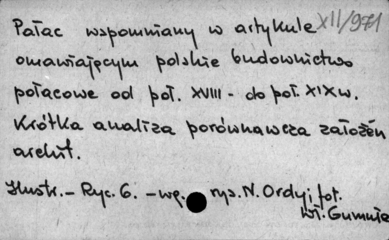 XII/971
Pałac wspomniany w artykule
omawiającym polskie budownictwo
pałacowe od poł. XVIII - do poł. XIX w.
Krótka analiza porównawcza założeń
archit.
Ilustr. - Ryc. 6. - wg. rys. N. Ordy, fot.
Wł. Gumuła